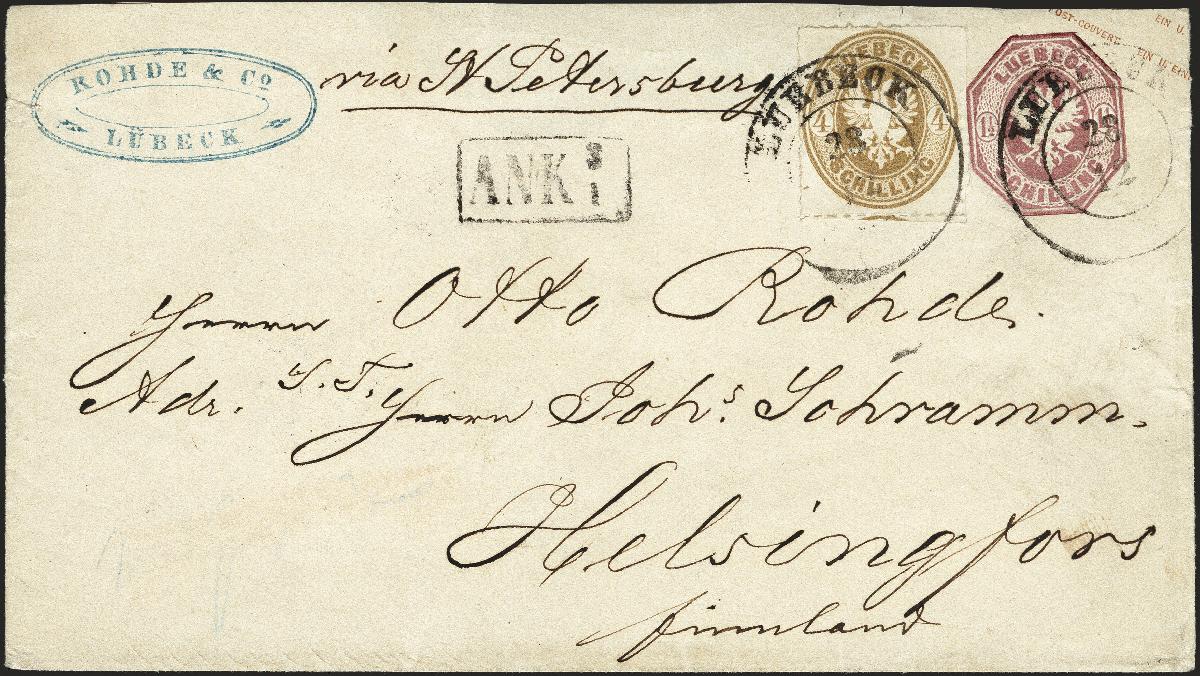 ROHDE & Cº
LÜBECK
via St Petersburg
ANK:
LUEBECK
4 4
SCHILLING
LUEBECK
23
POST-COUVERT EIN U.
EIN U. EIN
LUEBECK
1½ 1½
SCHILLING
LUEBECK
23
12
Herrn Otto Rohde.
Adr. S. T. Herrn Johs. Schramm.
Helsingfors
finnland